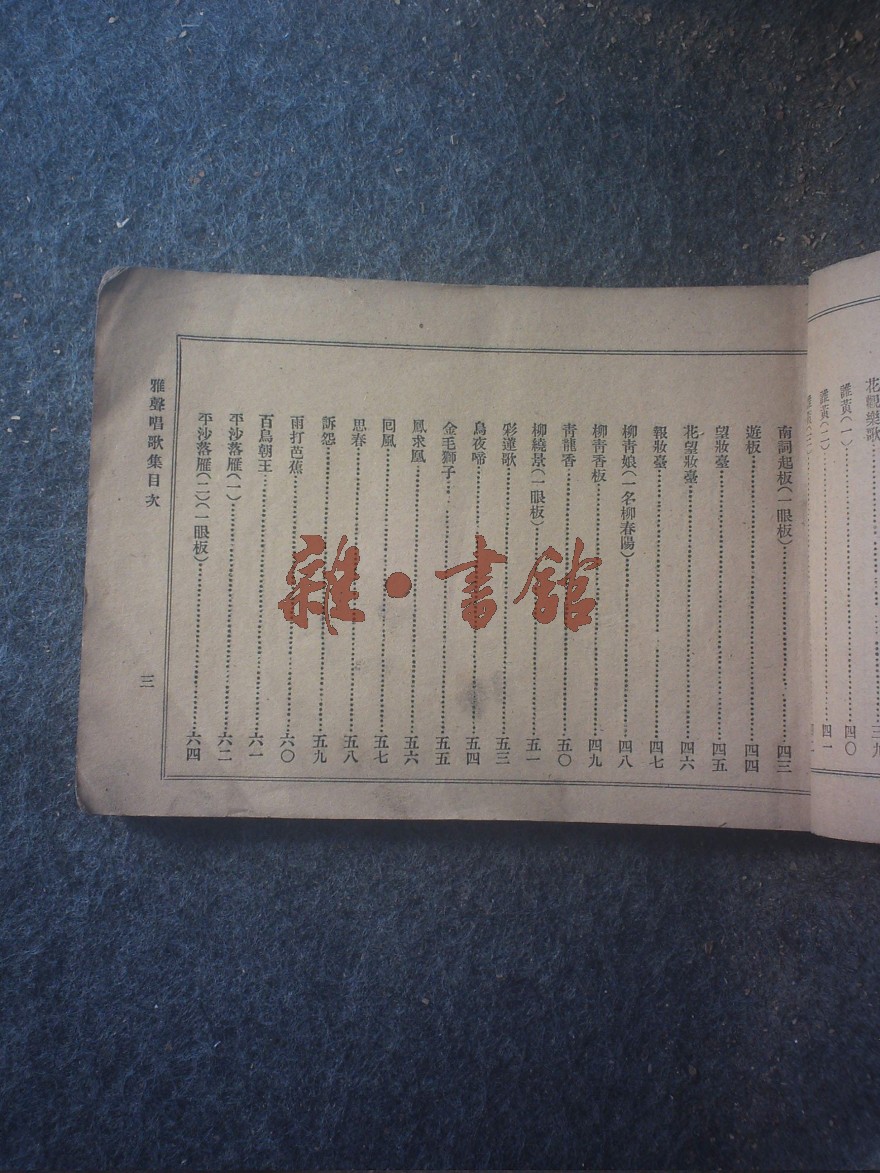 花觀樂歌……三九
誰黃(一)……四〇
誰黃(二)……四一
南詞起板(一眼板)……四三
遊板……四四
望妝臺……四五
花望妝臺……四六
報妝臺……四七
柳青娘(一名柳春陽)……四八
柳青香板……四九
青龍香……五〇
柳繞景(一眼板)……五一
彩蓮歌……五三
烏夜啼……五四
金毛獅子……五五
鳳求凰……五六
囘風……五七
思春……五八
訴怨……五九
雨打芭蕉……六〇
百鳥朝王……六一
平沙落雁(一)……六二
平沙落雁(二)(一眼板)……六四
雅聲唱歌集目次
三
雜·書館